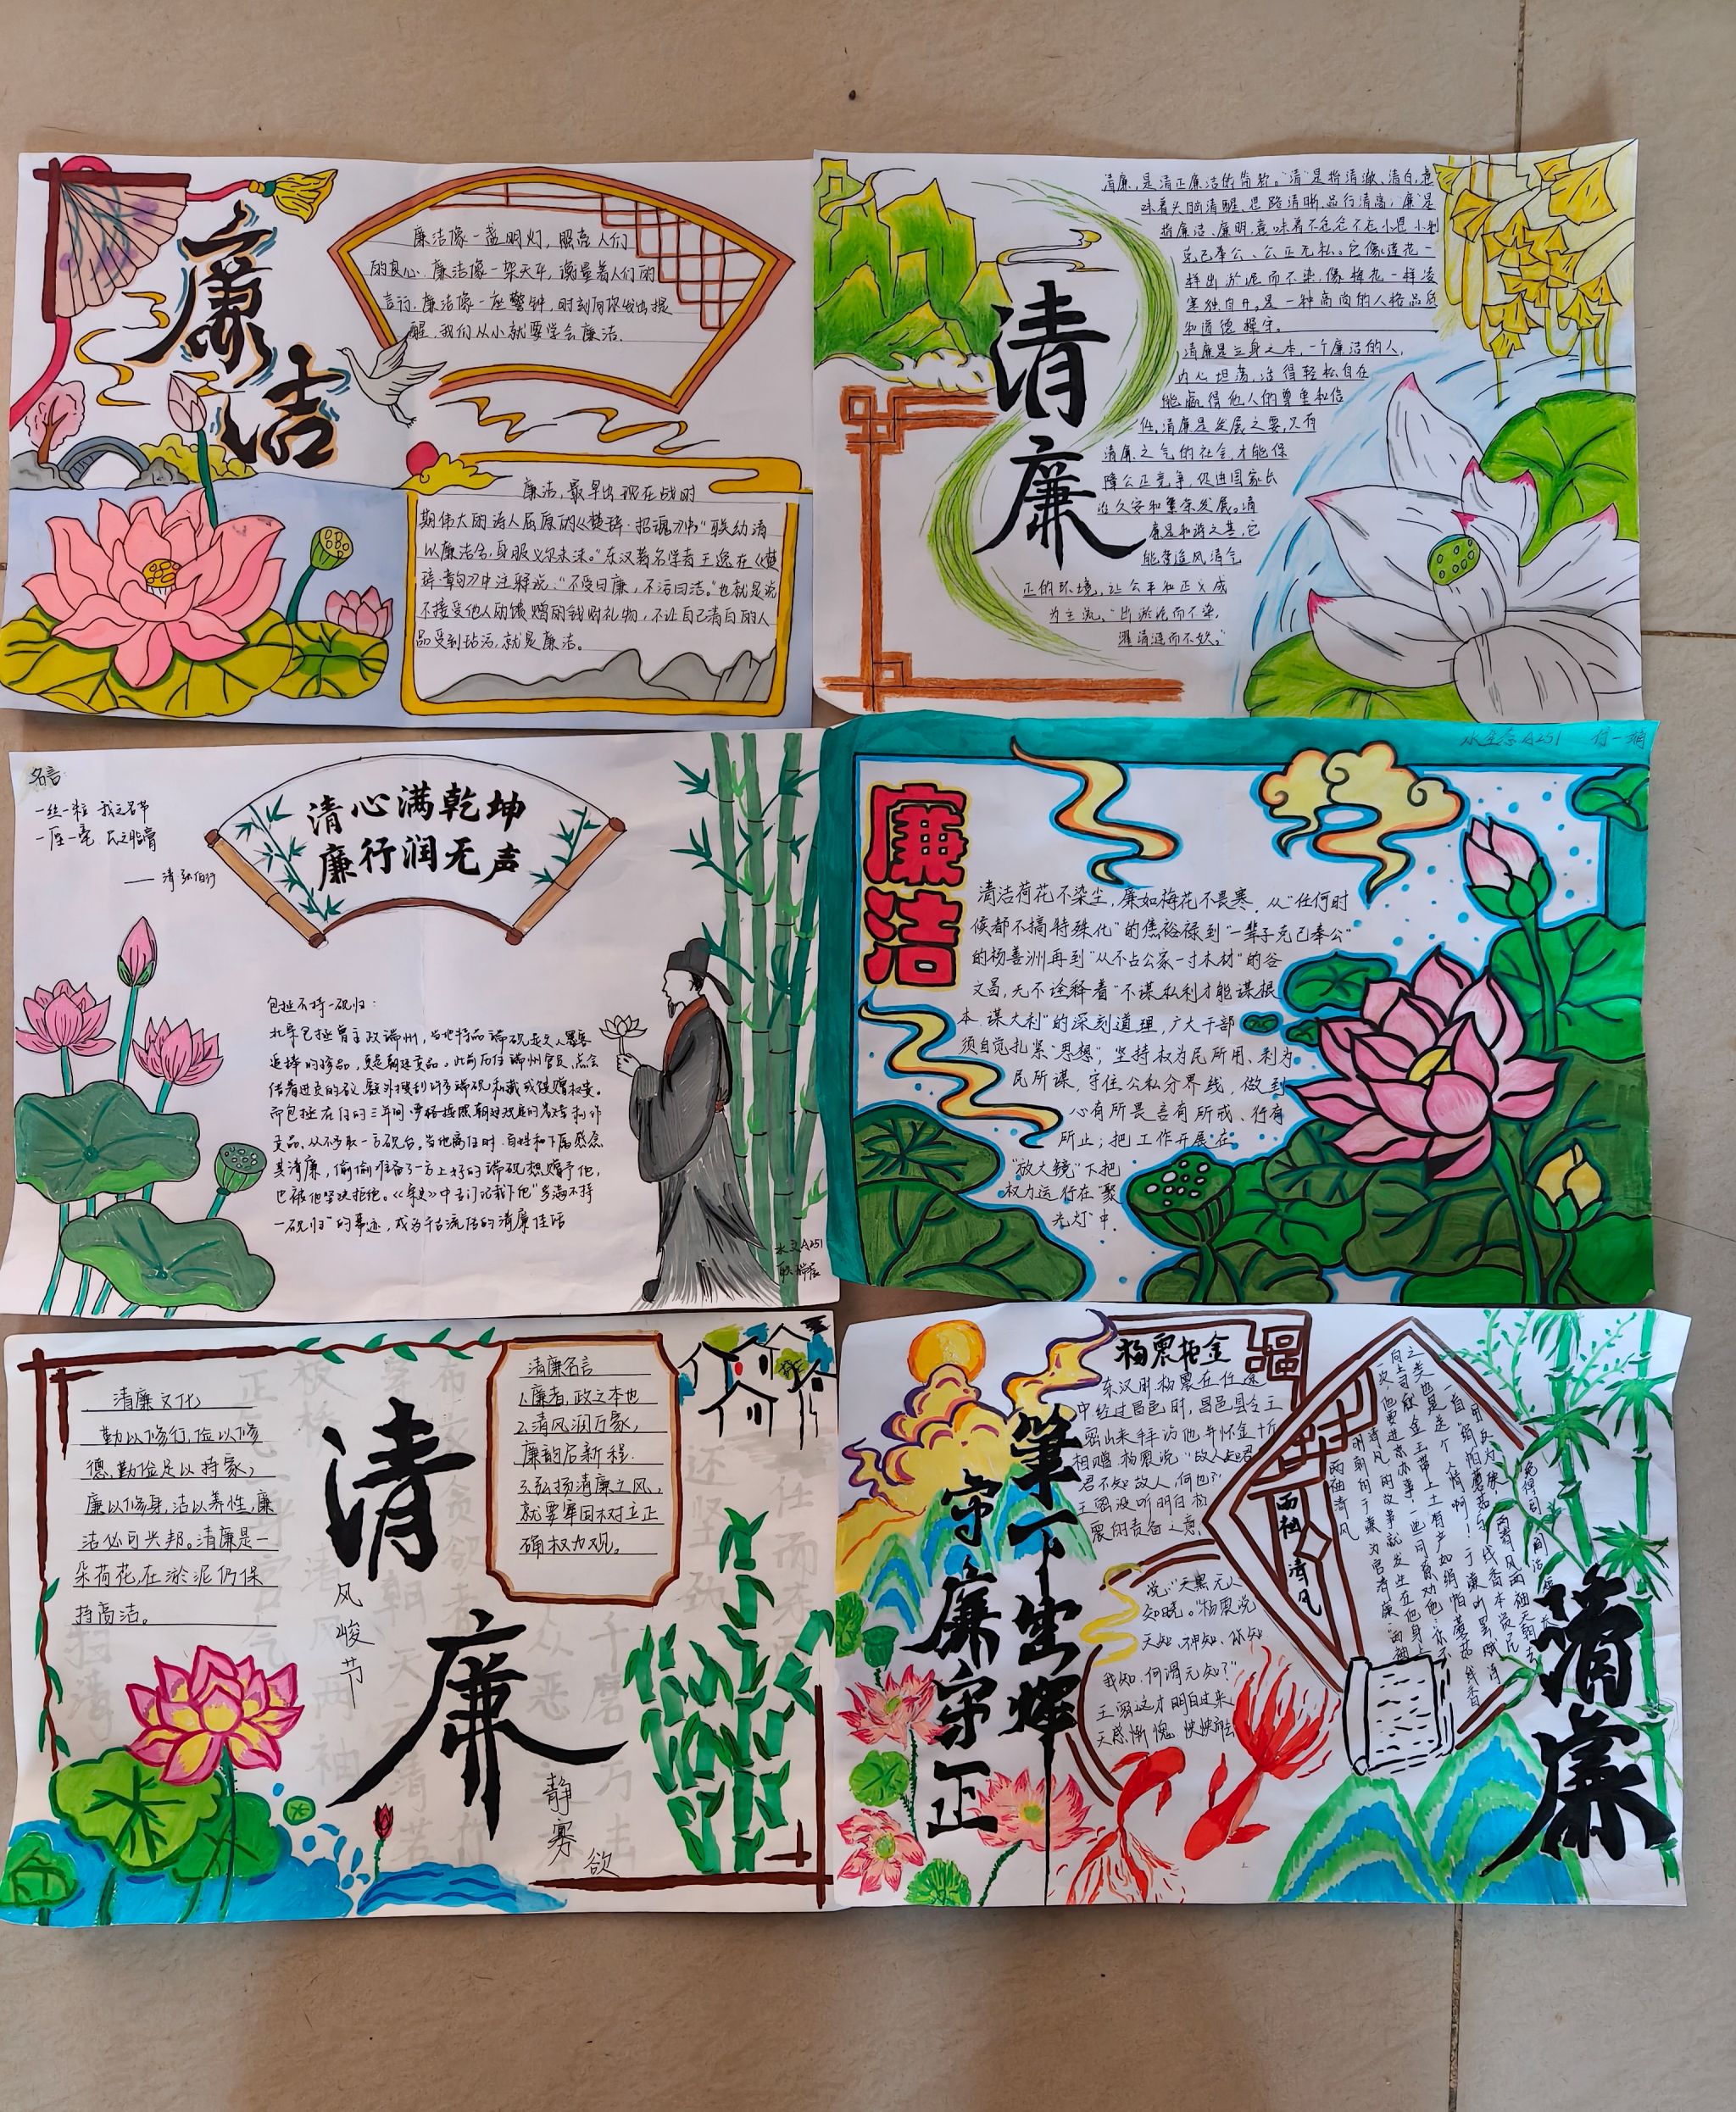 廉洁
廉洁像一盏明灯，照亮人们
的良心.廉洁像一架天平，衡量着人们的
言行.廉洁像一座警钟，时刻向你发出提
醒.我们从小就要学会廉洁.
廉洁，最早出现在战时
期伟大的诗人屈原的《楚辞·招魂》中“朕幼清
以廉洁兮，身服义尔未沫。”东汉著名学者王逸在《楚
辞·章句》中注释说:“不受曰廉，不污曰洁。”也就是说
不接受他人的馈赠的钱财礼物，不让自己清白的人
品受到玷污，就是廉洁。
清廉
清廉，是清正廉洁的简称。“清”是指清澈、清白，意
味着头脑清醒、思路清晰、品行清高；“廉”是
指廉洁、廉明，意味着不贪念不占小恩小利
克己奉公、公正无私。它像莲花一
样出於泥而不染，像梅花一样凌
寒独自开。是一种高尚的人格品质
和道德操守。
清廉是立身之本，一个廉洁的人，
内心坦荡，活得轻松自在
能赢得他人的尊重和信
任，清廉是发展之要，只有
清廉之气的社会，才能保
障公正竞争，促进国家长
治久安和繁荣发展。清
廉是和谐之基，它
能营造风清气
正的环境，让公平和正义成
为主流。“出淤泥而不染，
濯清涟而不妖。”
名言
一丝一粒 我之名节
一厘一毫 民之脂膏
—— 清 张伯行
清心满乾坤
廉行润无声
包拯不持一砚归：
北宋包拯曾主政端州，当地特品端砚是文人墨客
追捧的珍品，更是朝廷贡品。此前历任端州官员，总会
借着进贡的名义，额外搜刮许多端砚私藏或馈赠权贵。
而包拯在任的三年间，严格按照朝廷规定的名额制作
贡品、从不多取一方砚台。当他离任时，百姓和下属感念
其清廉，偷偷准备了一方上好的端砚想赠予他，
也被他坚决拒绝。《宋史》中专门记载下他“岁满不持
一砚归”的事迹，成为千古流传的清廉佳话
水生A251
水生态A251 付一
廉洁
清洁荷花不染尘，廉如梅花不畏寒，从“任何时
候都不搞特殊化”的焦裕禄到“一辈子克己奉公”
的杨善洲再到“从不占公家一寸木材”的谷
文昌，无不诠释着“不谋私利才能谋根
本、谋大利”的深刻道理，广大干部
须自觉扎紧“思想”，坚持权为民所用、利为
民所谋，守住公私分界线，做到
心有所畏、言有所戒、行有
所止；把工作开展在
“放大镜”下把
权力运行在“聚
光灯”中.
清廉文化
勤以修行，俭以修
德，勤俭足以持家，
廉以修身，洁以养性，廉
洁必可兴邦。清廉是一
朵荷花，在淤泥仍保
持高洁。
清廉
风峻节
静寡欲
清廉名言
1.廉者，政之本也
2.清风润万家，
廉韵启新程.
3.弘扬清廉之风，
就要牢固树立正
确权力观。
杨震拒金
东汉时杨震在任途
中经过昌邑时，昌邑县令王
密山来拜访他并怀金十斤
相赠.杨震说“故人知君
君不知故人,何也?”
王密没听明白杨
震的责备之意.
说:“天黑无人
知晓。”杨震说
天知、神知、你知
我知.何谓无知?”
王密这才明白过来
大感惭愧 怏怏而去
笔下生辉
守廉守正
两袖清风
清廉